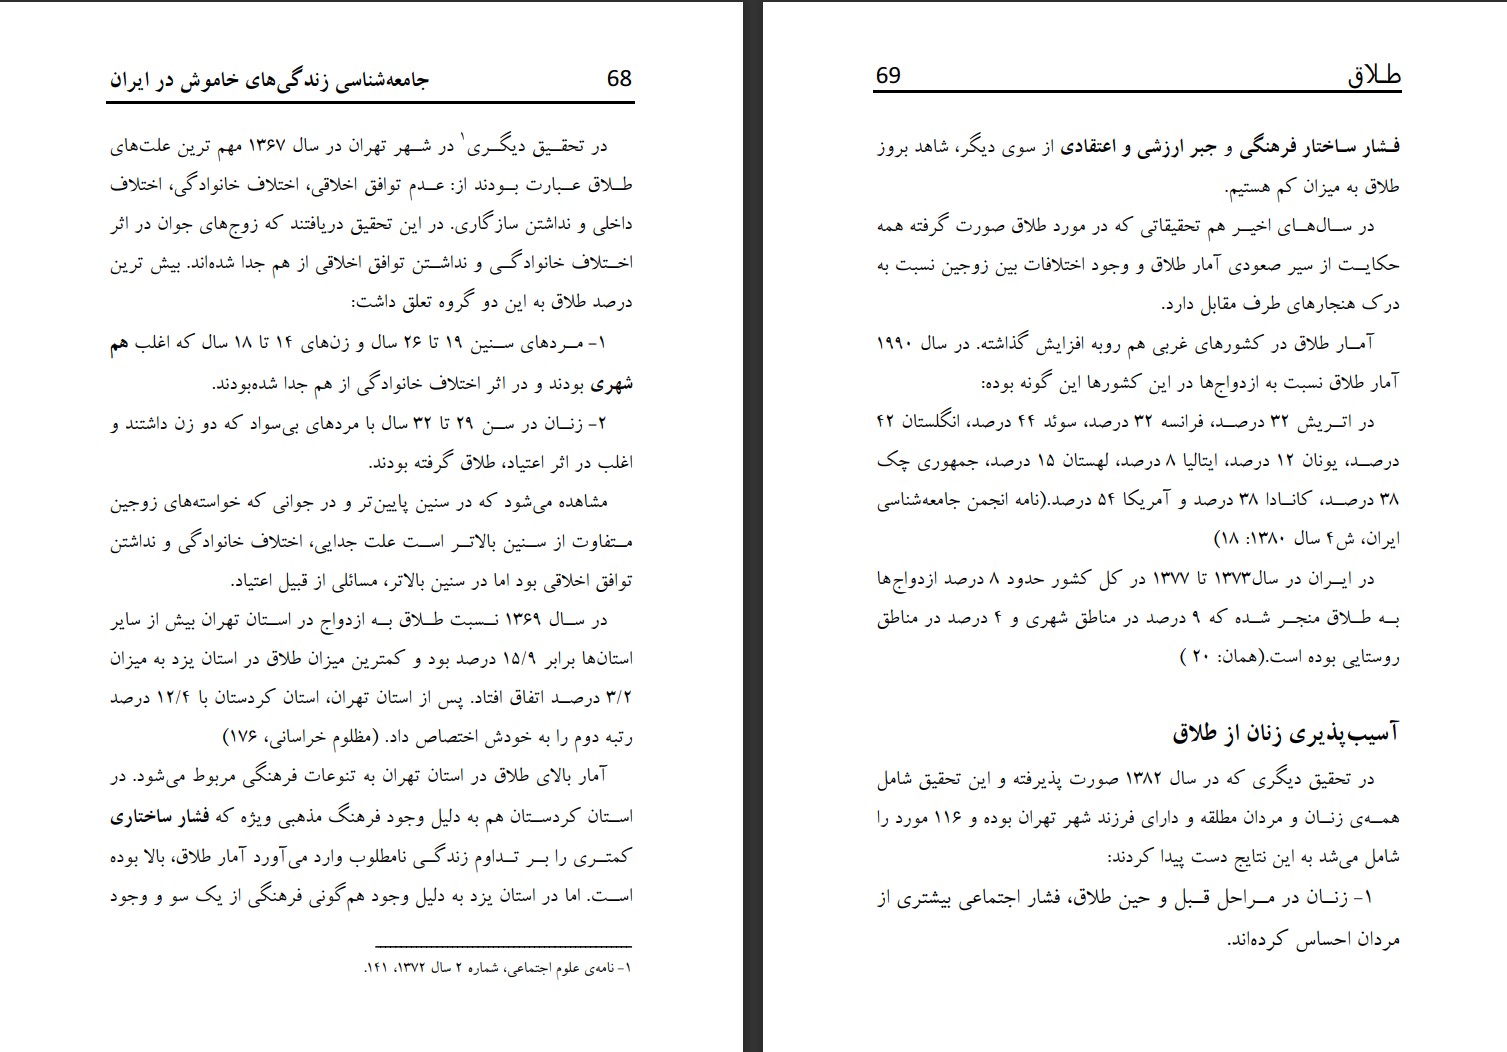 جامعه‌شناسی زندگی‌های خاموش در ایران 68
در تحقیق دیگری۱ در شهر تهران در سال ۱۳۶۷ مهم ترین علت‌های
طلاق عبارت بودند از: عدم توافق اخلاقی، اختلاف خانوادگی، اختلاف
داخلی و نداشتن سازگاری. در این تحقیق دریافتند که زوج‌های جوان در اثر
اختلاف خانوادگی و نداشتن توافق اخلاقی از هم جدا شده‌اند. بیش ترین
درصد طلاق به این دو گروه تعلق داشت:
۱- مردهای سنین ۱۹ تا ۲۶ سال و زن‌های ۱۴ تا ۱۸ سال که اغلب هم
شهری بودند و در اثر اختلاف خانوادگی از هم جدا شده‌بودند.
۲- زنان در سن ۲۹ تا ۳۲ سال با مردهای بی‌سواد که دو زن داشتند و
اغلب در اثر اعتیاد، طلاق گرفته بودند.
مشاهده می‌شود که در سنین پایین‌تر و در جوانی که خواسته‌های زوجین
متفاوت از سنین بالاتر است علت جدایی، اختلاف خانوادگی و نداشتن
توافق اخلاقی بود اما در سنین بالاتر، مسائلی از قبیل اعتیاد.
در سال ۱۳۶۹ نسبت طلاق به ازدواج در استان تهران بیش از سایر
استان‌ها برابر ۱۵/۹ درصد بود و کمترین میزان طلاق در استان یزد به میزان
۳/۲ درصد اتفاق افتاد. پس از استان تهران، استان کردستان با ۱۲/۴ درصد
رتبه دوم را به خودش اختصاص داد. (مظلوم خراسانی، ۱۷۶)
آمار بالای طلاق در استان تهران به تنوعات فرهنگی مربوط می‌شود. در
استان کردستان هم به دلیل وجود فرهنگ مذهبی ویژه که فشار ساختاری
کمتری را بر تداوم زندگی نامطلوب وارد می‌آورد آمار طلاق، بالا بوده
است. اما در استان یزد به دلیل وجود هم‌گونی فرهنگی از یک سو و وجود
۱- نامه‌ی علوم اجتماعی، شماره ۲ سال ۱۳۷۲، ۱۴۱.
طلاق 69
فشار ساختار فرهنگی و جبر ارزشی و اعتقادی از سوی دیگر، شاهد بروز
طلاق به میزان کم هستیم.
در سال‌های اخیر هم تحقیقاتی که در مورد طلاق صورت گرفته همه
حکایت از سیر صعودی آمار طلاق و وجود اختلافات بین زوجین نسبت به
درک هنجارهای طرف مقابل دارد.
آمار طلاق در کشورهای غربی هم روبه افزایش گذاشته. در سال ۱۹۹۰
آمار طلاق نسبت به ازدواج‌ها در این کشورها این گونه بوده:
در اتریش ۳۲ درصد، فرانسه ۳۲ درصد، سوئد ۴۴ درصد، انگلستان ۴۲
درصد، یونان ۱۲ درصد، ایتالیا ۸ درصد، لهستان ۱۵ درصد، جمهوری چک
۳۸ درصد، کانادا ۳۸ درصد و آمریکا ۵۴ درصد.(نامه انجمن جامعه‌شناسی
ایران، ش۴ سال ۱۳۸۰: ۱۸)
در ایران در سال۱۳۷۳ تا ۱۳۷۷ در کل کشور حدود ۸ درصد ازدواج‌ها
به طلاق منجر شده که ۹ درصد در مناطق شهری و ۴ درصد در مناطق
روستایی بوده است.(همان: ۲۰ )
آسیب‌پذیری زنان از طلاق
در تحقیق دیگری که در سال ۱۳۸۲ صورت پذیرفته و این تحقیق شامل
همه‌ی زنان و مردان مطلقه و دارای فرزند شهر تهران بوده و ۱۱۶ مورد را
شامل می‌شد به این نتایج دست پیدا کردند:
۱- زنان در مراحل قبل و حین طلاق، فشار اجتماعی بیشتری از
مردان احساس کرده‌اند.